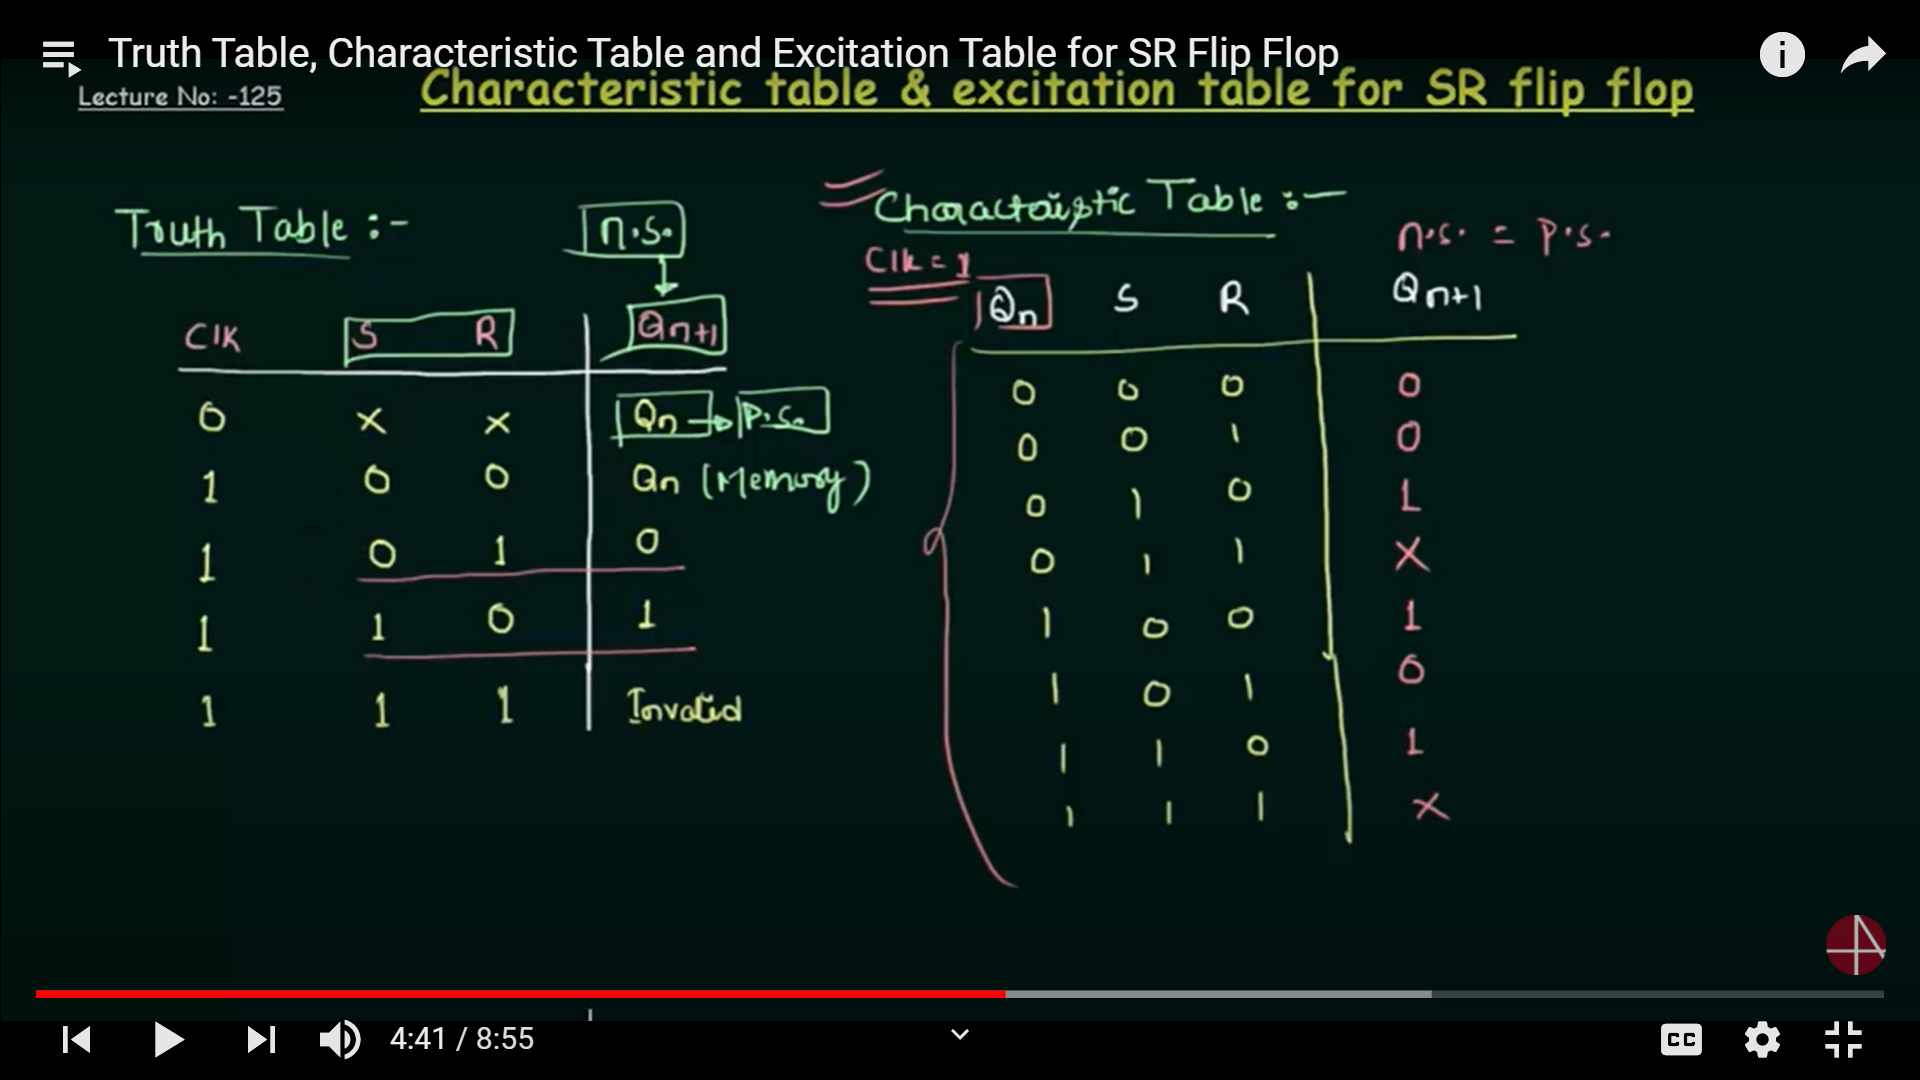 Truth Table, Characteristic Table and Excitation Table for SR Flip Flop
Lecture No: -125
Characteristic table & excitation table for SR flip flop
Truth Table :-
n.s.
Clk S R Qn+1
0 x x Qn → P.S.
1 0 0 Qn (Memory)
1 0 1 0
1 1 0 1
1 1 1 Invalid
Characteristic Table :-
n.s. = P.S.
Clk = 1
Qn S R Qn+1
0 0 0 0
0 0 1 0
0 1 0 1
0 1 1 X
1 0 0 1
1 0 1 0
1 1 0 1
1 1 1 X
4:41 / 8:55
CC